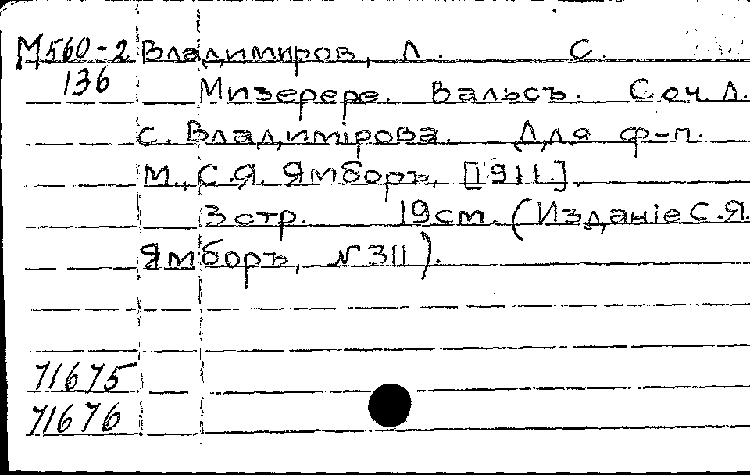 М560-2 Владимиров, Л. С.
136 Мизерере. Вальсъ. Соч. Л.
С. Владимірова. Для ф-п.
М., С.Я. Ямборъ, [1911.].
3 стр. 19 см. (Изданіе С.Я.
Ямборъ, № 311).
71675
71676